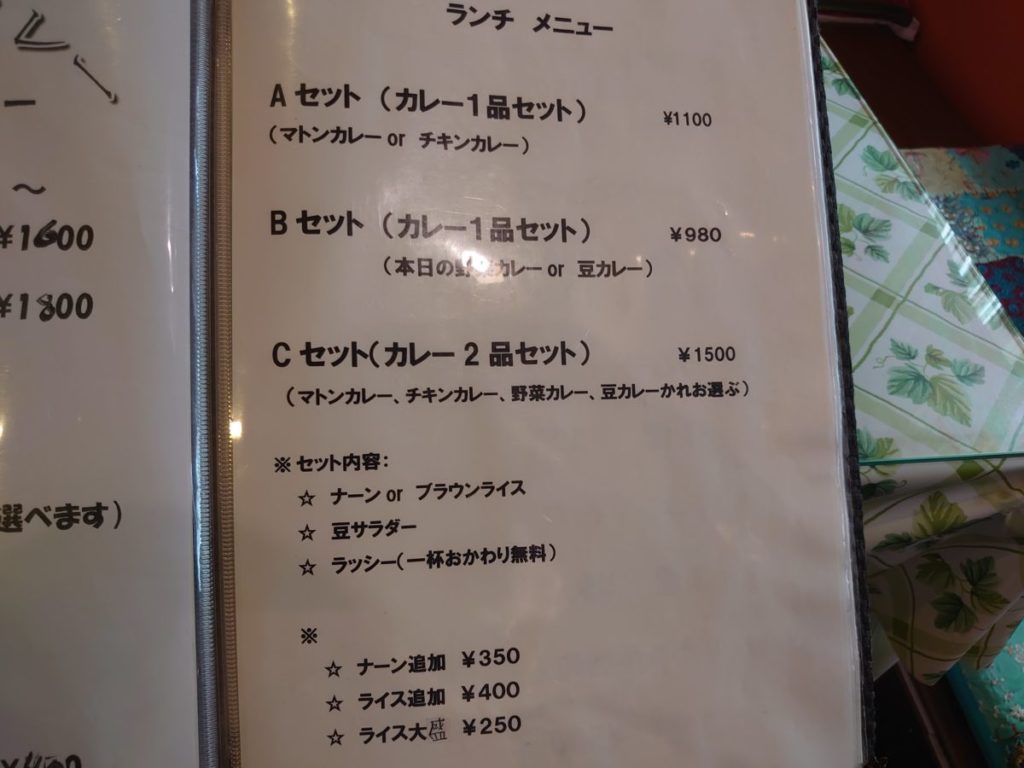 ー
～
¥1600
¥1800
選べます）
ランチ メニュー
A セット （カレー１品セット） ¥1100
（マトンカレー or チキンカレー）
B セット （カレー１品セット） ¥980
（本日の野菜カレー or 豆カレー）
C セット（カレー２品セット） ¥1500
（マトンカレー、チキンカレー、野菜カレー、豆カレーかれお選ぶ）
※ セット内容：
☆ ナーン or ブラウンライス
☆ 豆サラダー
☆ ラッシー（一杯おかわり無料）
※
☆ ナーン追加 ¥350
☆ ライス追加 ¥400
☆ ライス大盛 ¥250